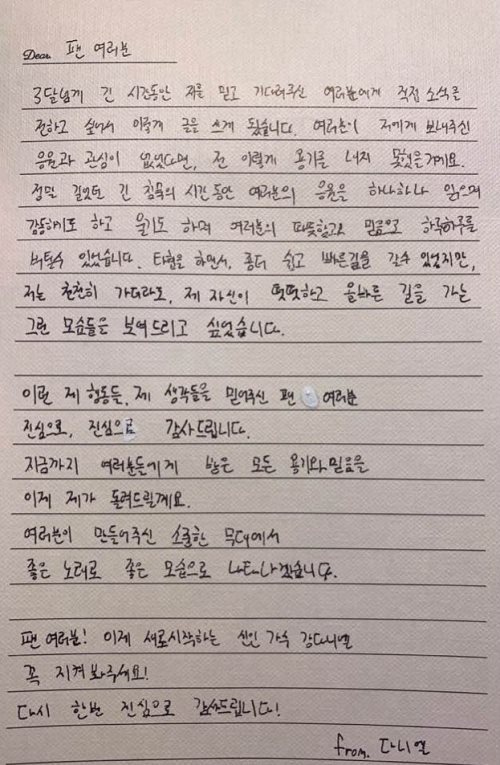 Dear. 팬 여러분
3달넘게 긴 시간동안 저를 믿고 기다려주신 여러분에게 직접 소식을
전하고 싶어서 이렇게 글을 쓰게 됐습니다. 여러분이 저에게 보내주신
응원과 관심이 없었다면, 전 이렇게 용기를 내지 못했을거예요.
정말 길었던 긴 침묵의 시간동안 여러분의 응원을 하나하나 읽으며
감동하기도 하고 울기도 하며 여러분의 따뜻함과 믿음으로 하루하루를
버틸수 있었습니다. 타협을 하면서, 좀더 쉽고 빠른길을 갈수 있었지만,
저는 천천히 가더라도, 제 자신이 떳떳하고 올바른 길을 가는
그런 모습들을 보여드리고 싶었습니다.
이런 제 행동들, 제 생각들을 믿어주신 팬 여러분
진심으로, 진심으로 감사드립니다.
지금까지 여러분들에게 받은 모든 용기와 믿음을
이제 제가 돌려드릴게요.
여러분이 만들어주신 소중한 무대에서
좋은 노래로 좋은 모습으로 나타나겠습니다.
팬 여러분! 이제 새로시작하는 신인 가수 강다니엘
꼭 지켜봐주세요!
다시 한번 진심으로 감사드립니다!
from. 다니엘